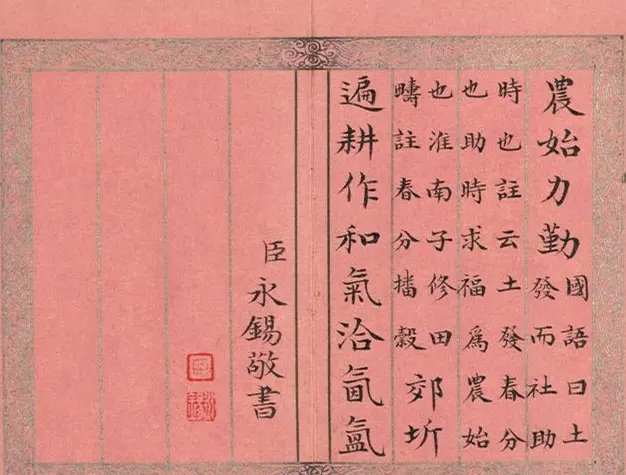 農始力勤
國語曰土
發而社助
時也註云土發春分
也助時求福爲農始
也淮南子修田
疇註春分播穀
郊圻
遍耕作和氣洽氤氳
臣永錫敬書
臣